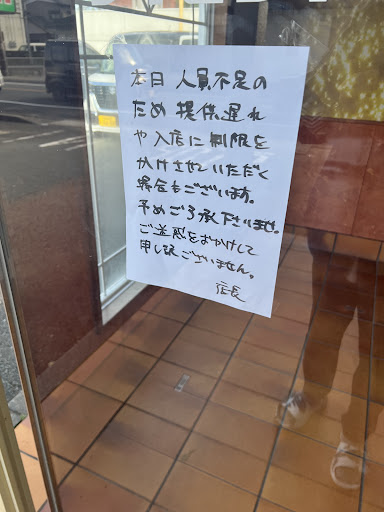 本日 人員不足の
ため 提供遅れ
や 入店に制限を
かけさせていただく
場合もございます。
予めご了承下さいませ。
ご迷惑をおかけして
申し訳ございません。
店長